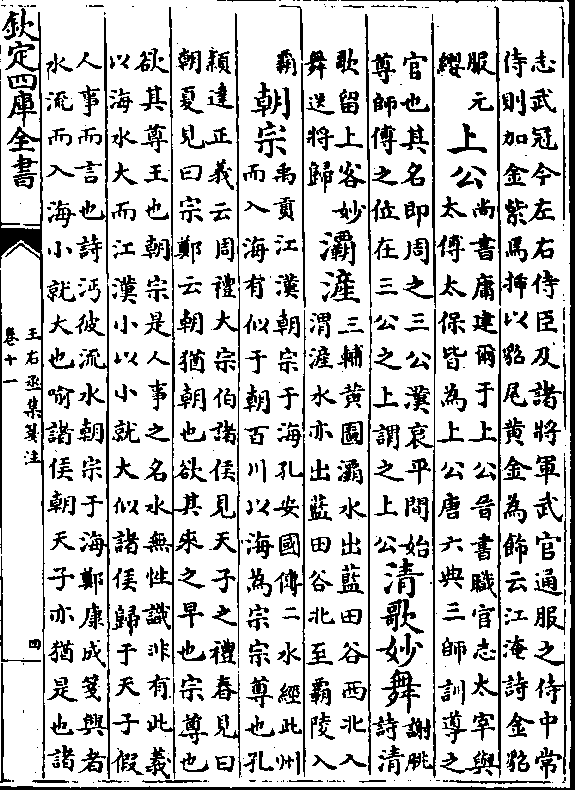 志武冠今左右侍臣及諸將軍武官通服之侍中常
侍則加金紫焉揷以貂尾黄金為飾云江淹詩金貂
服元
纓
上公
尚書庸建爾于上公晉書職官志太宰與
太傅太保皆為上公唐六典三師訓導之
官也其名即周之三公漢哀平間始
尊師傅之位在三公之上謂之上公
清歌妙舞
謝朓
詩清
歌留上客妙
舞送將歸
灞滻
三輔黄圖灞水出藍田谷西北入
渭滻水亦出藍田谷北至霸陵入
霸
朝宗
禹貢江漢朝宗于海孔安國傳二水經此州
而入海有似于朝百川以海為宗宗尊也孔
穎達正義云周禮大宗伯諸侯見天子之禮春見曰
朝夏見曰宗鄭云朝猶朝也欲其來之早也宗尊也
欲其尊王也朝宗是人事之名水無性識非有此義
以海水大而江漢小以小就大似諸侯歸于天子假
人事而言也詩沔彼流水朝宗于海鄭康成箋興者
水流而入海小就大也喻諸侯朝天子亦猶是也諸
欽定四庫全書
王右丞集箋注
卷十一
四